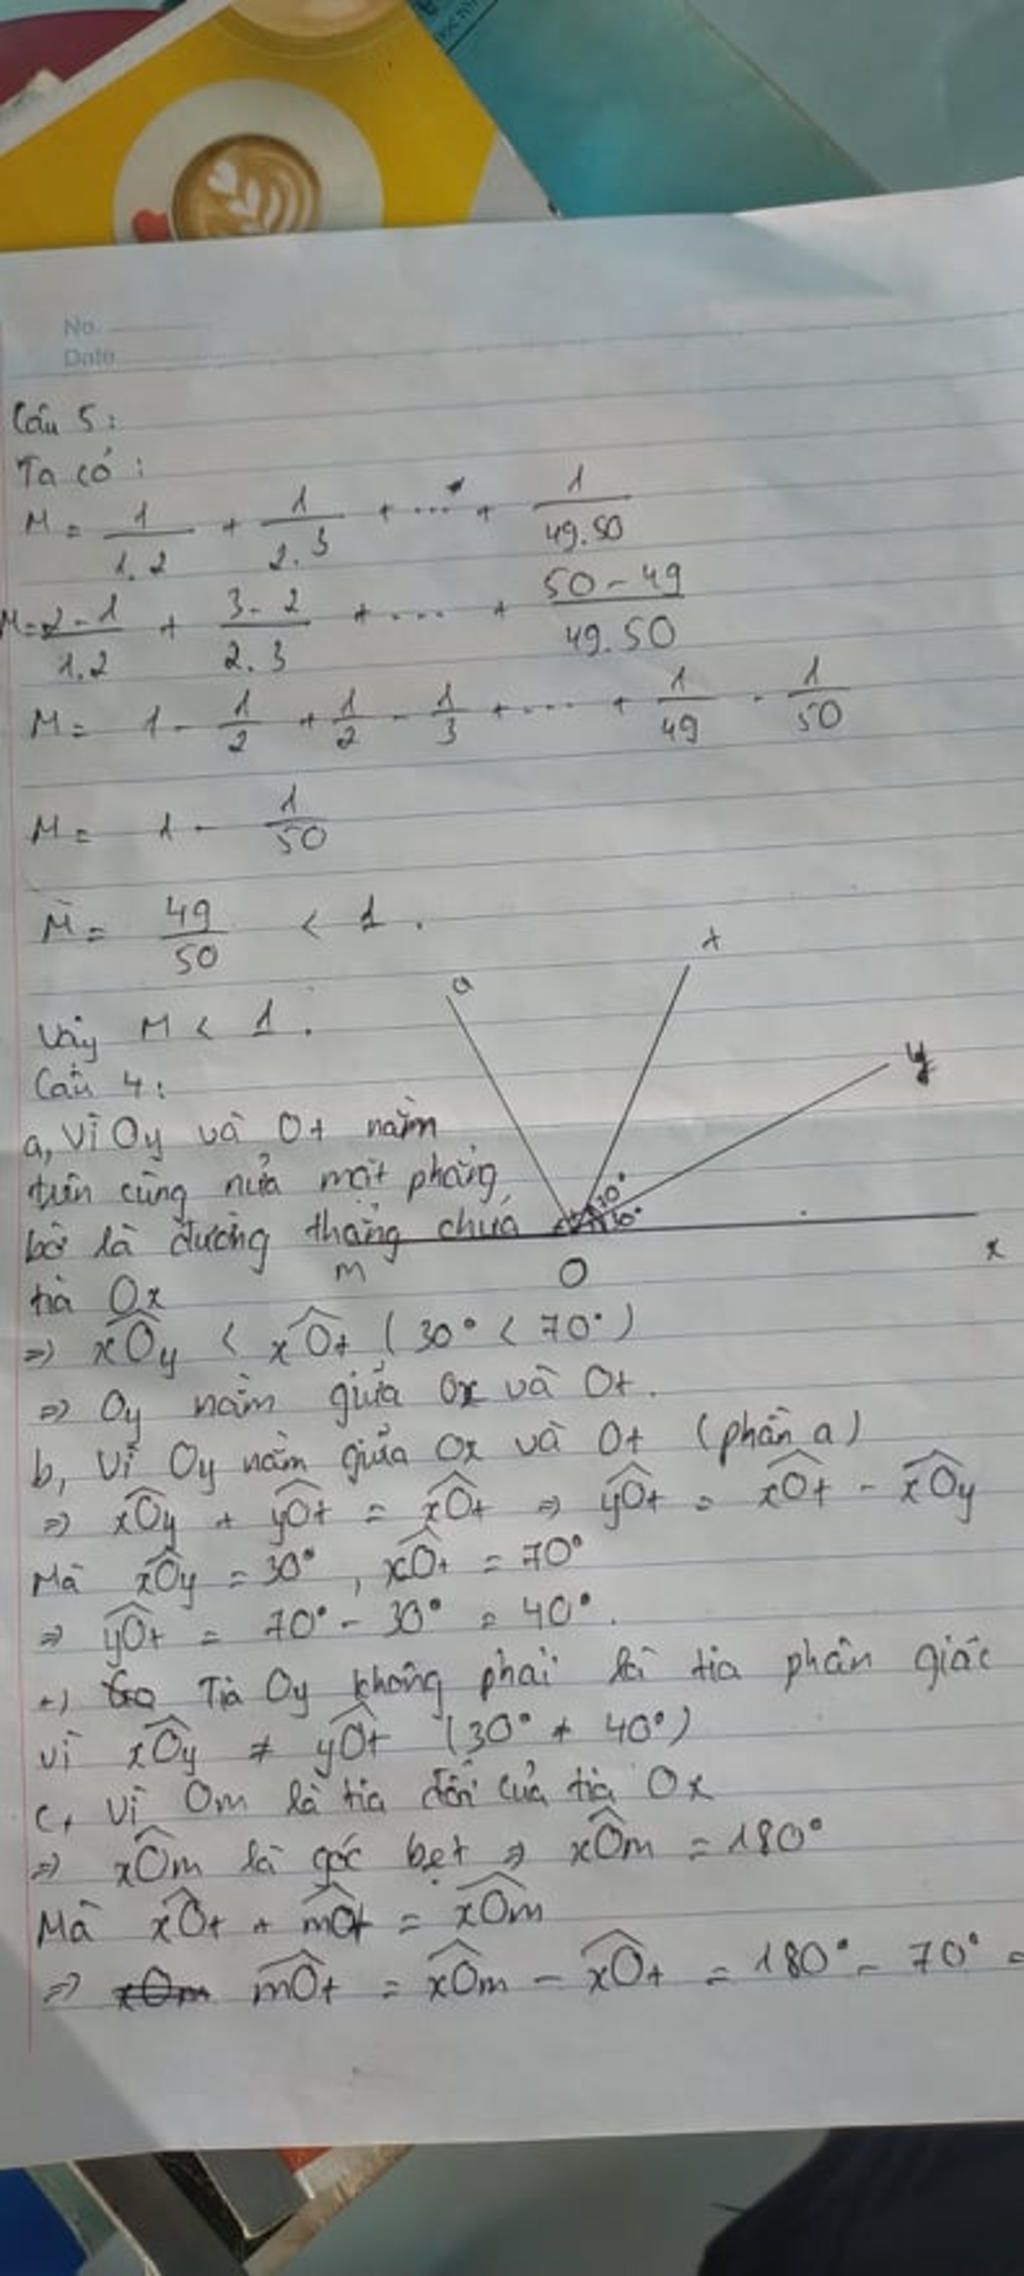 No.
Date
Câu 5:
Ta có:
M = 1/1.2 + 1/2.3 + .... + 1/49.50
M = 2-1/1.2 + 3-2/2.3 + .... + 50-49/49.50
M = 1 - 1/2 + 1/2 - 1/3 + .... + 1/49 - 1/50
M = 1 - 1/50
M = 49/50 < 1.
Vậy M < 1.
Câu 4:
a, Vì Oy và Ot nằm
trên cùng nửa mặt phẳng
bờ là đường thẳng chứa
tia Ox
a
t
y
m
O
x
=> xOy < xOt (30° < 70°)
=> Oy nằm giữa Ox và Ot.
b, Vì Oy nằm giữa Ox và Ot (phần a)
=> xOy + yOt = xOt => yOt = xOt - xOy
Mà xOy = 30°, xOt = 70°
=> yOt = 70° - 30° = 40°.
+) Tia Oy không phải là tia phân giác
vì xOy ≠ yOt (30° ≠ 40°)
c, Vì Om là tia đối của tia Ox
=> xOm là góc bẹt => xOm = 180°
Mà xOt + mOt = xOm
=> mOt = xOm - xOt = 180° - 70° =